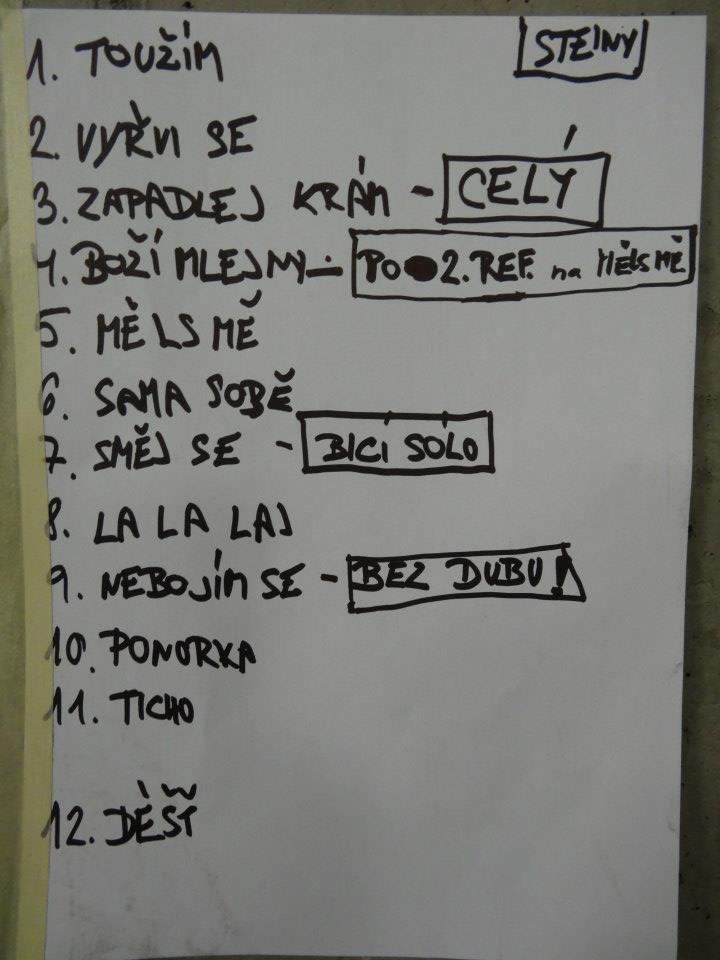 1. TOUŽÍM
STEINY
2. VYŘVI SE
3. ZAPADLEJ KRÁM - CELÝ
4. BOŽÍ MLEJNY - PO 2. REF. na MĚLS MĚ
5. MĚLS MĚ
6. SAMA SOBĚ
7. SMĚJ SE - BICÍ SÓLO
8. LA LA LAJ
9. NEBOJÍM SE - BEZ DUBU!
10. PONORKA
11. TICHO
12. DÉŠŤ